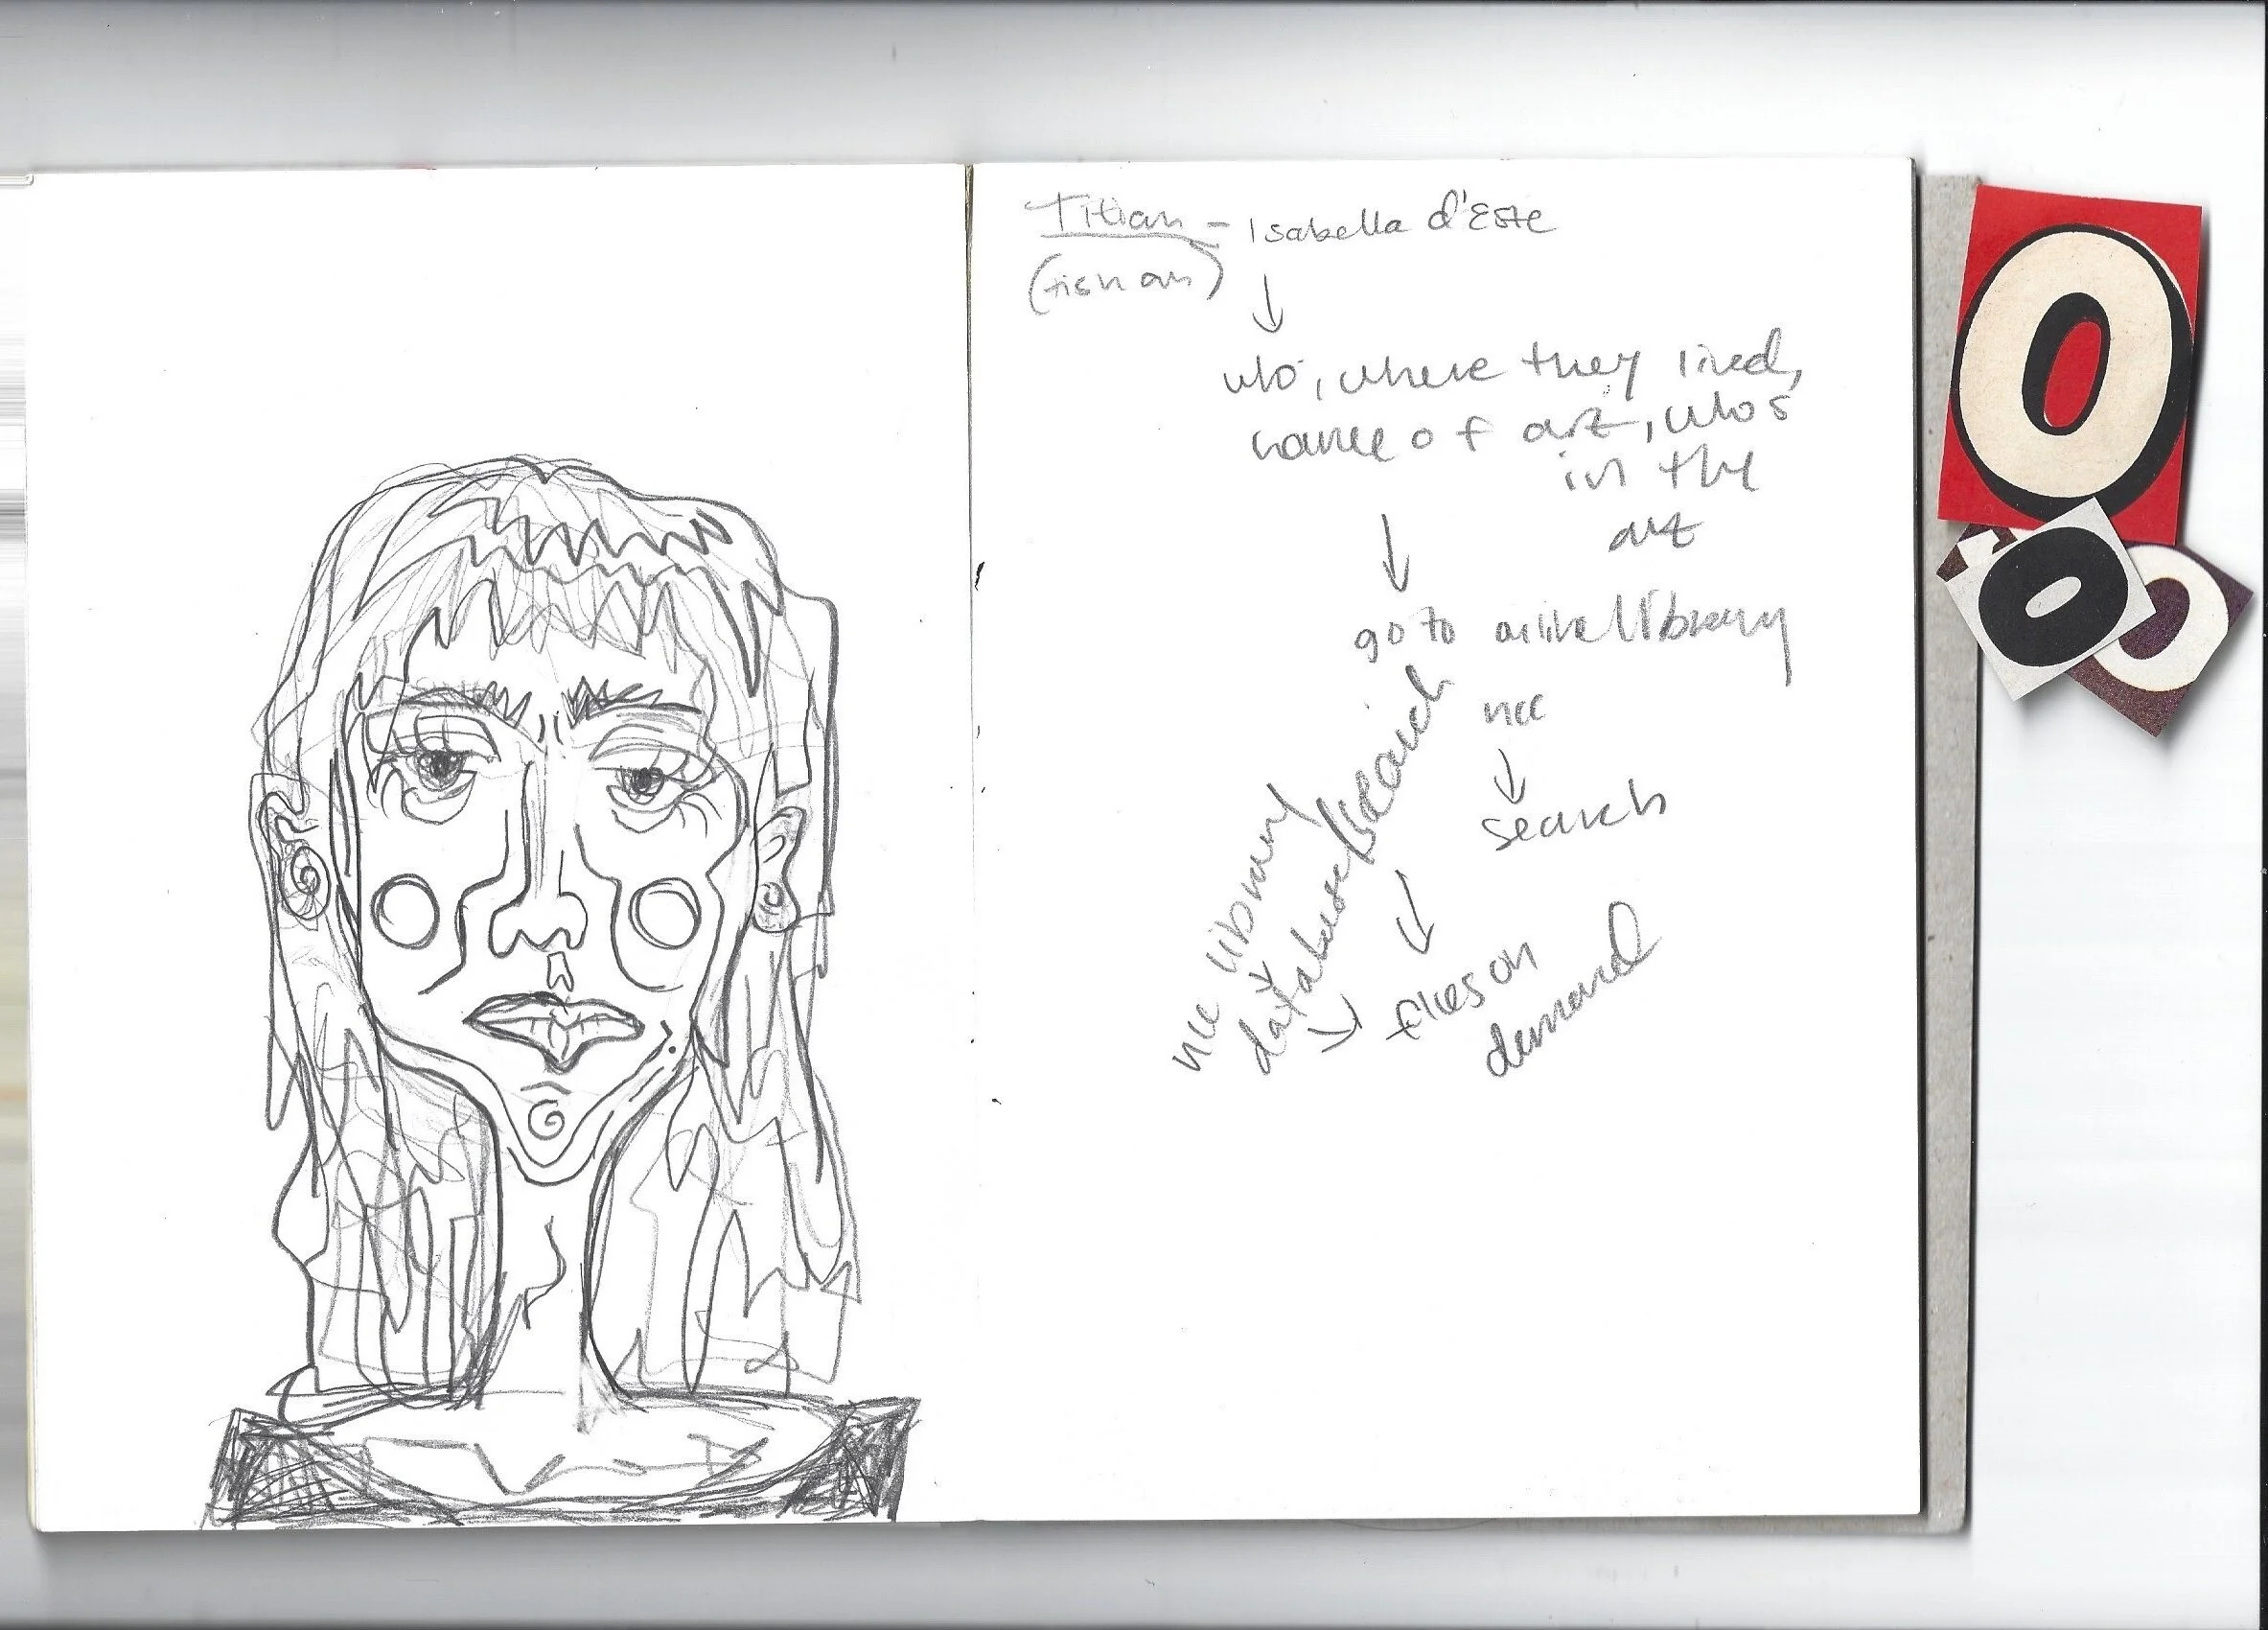 Titian - Isabella d'Este
(tish an)
who, where they lived,
name of art, whos
in the
art
go to online library
search
library
database/search
films on
demand
O
O